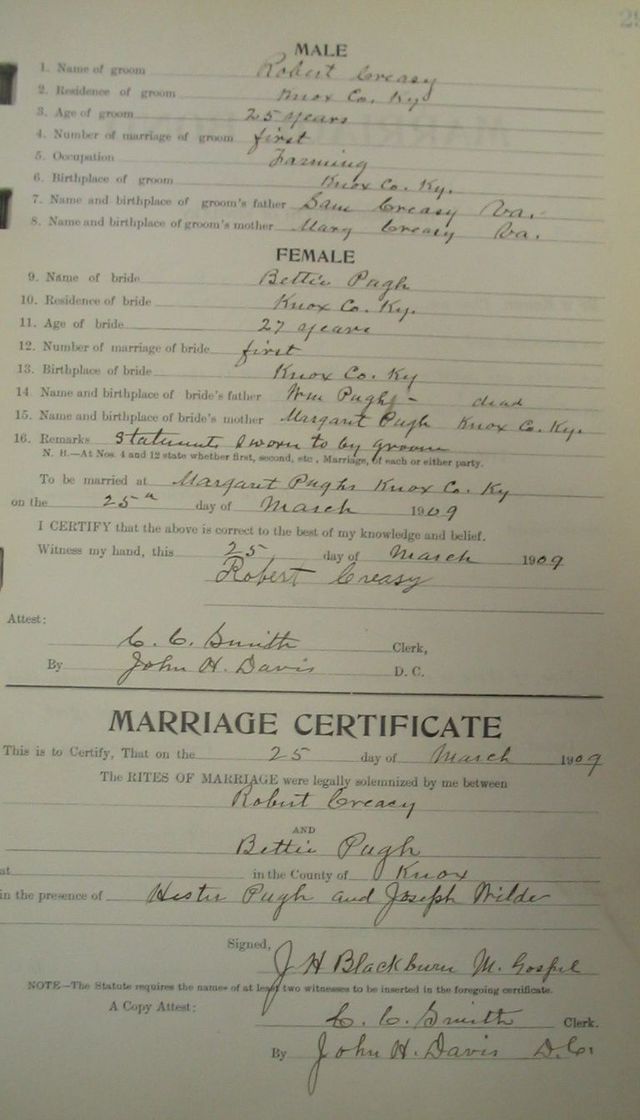 MALE
1. Name of groom Robert Creasy
2. Residence of groom Knox Co. Ky
3. Age of groom 25 years
4. Number of marriage of groom first
5. Occupation Farming
6. Birthplace of groom Knox Co. Ky.
7. Name and birthplace of groom's father Sam Creasy Va.
8. Name and birthplace of groom's mother Mary Creasy Va.
FEMALE
9. Name of bride Bettie Pugh
10. Residence of bride Knox Co. Ky.
11. Age of bride 27 years
12. Number of marriage of bride first
13. Birthplace of bride Knox Co. Ky
14 Name and birthplace of bride's father Wm Pugh - dead
15. Name and birthplace of bride's mother Margaret Pugh Knox Co. Ky.
16. Remarks Statement sworn to by groom
N. B.—At Nos. 4 and 12 state whether first, second, etc., Marriage, of each or either party.
To be married at Margaret Pughs Knox Co. Ky
on the 25th day of March 1909
I CERTIFY that the above is correct to the best of my knowledge and belief.
Witness my hand, this 25 day of March 1909
Robert Creasy
Attest:
C. C. Smith Clerk,
By John H. Davis D. C.
MARRIAGE CERTIFICATE
This is to Certify, That on the 25 day of March 1909
The RITES OF MARRIAGE were legally solemnized by me between
Robert Creasy
AND
Bettie Pugh
at in the County of Knox
in the presence of Hester Pugh and Joseph Wilder
Signed,
J H Blackburn M. Gospel
NOTE—The Statute requires the names of at least two witnesses to be inserted in the foregoing certificate.
A Copy Attest:
C. C. Smith Clerk.
By John H. Davis D.C.